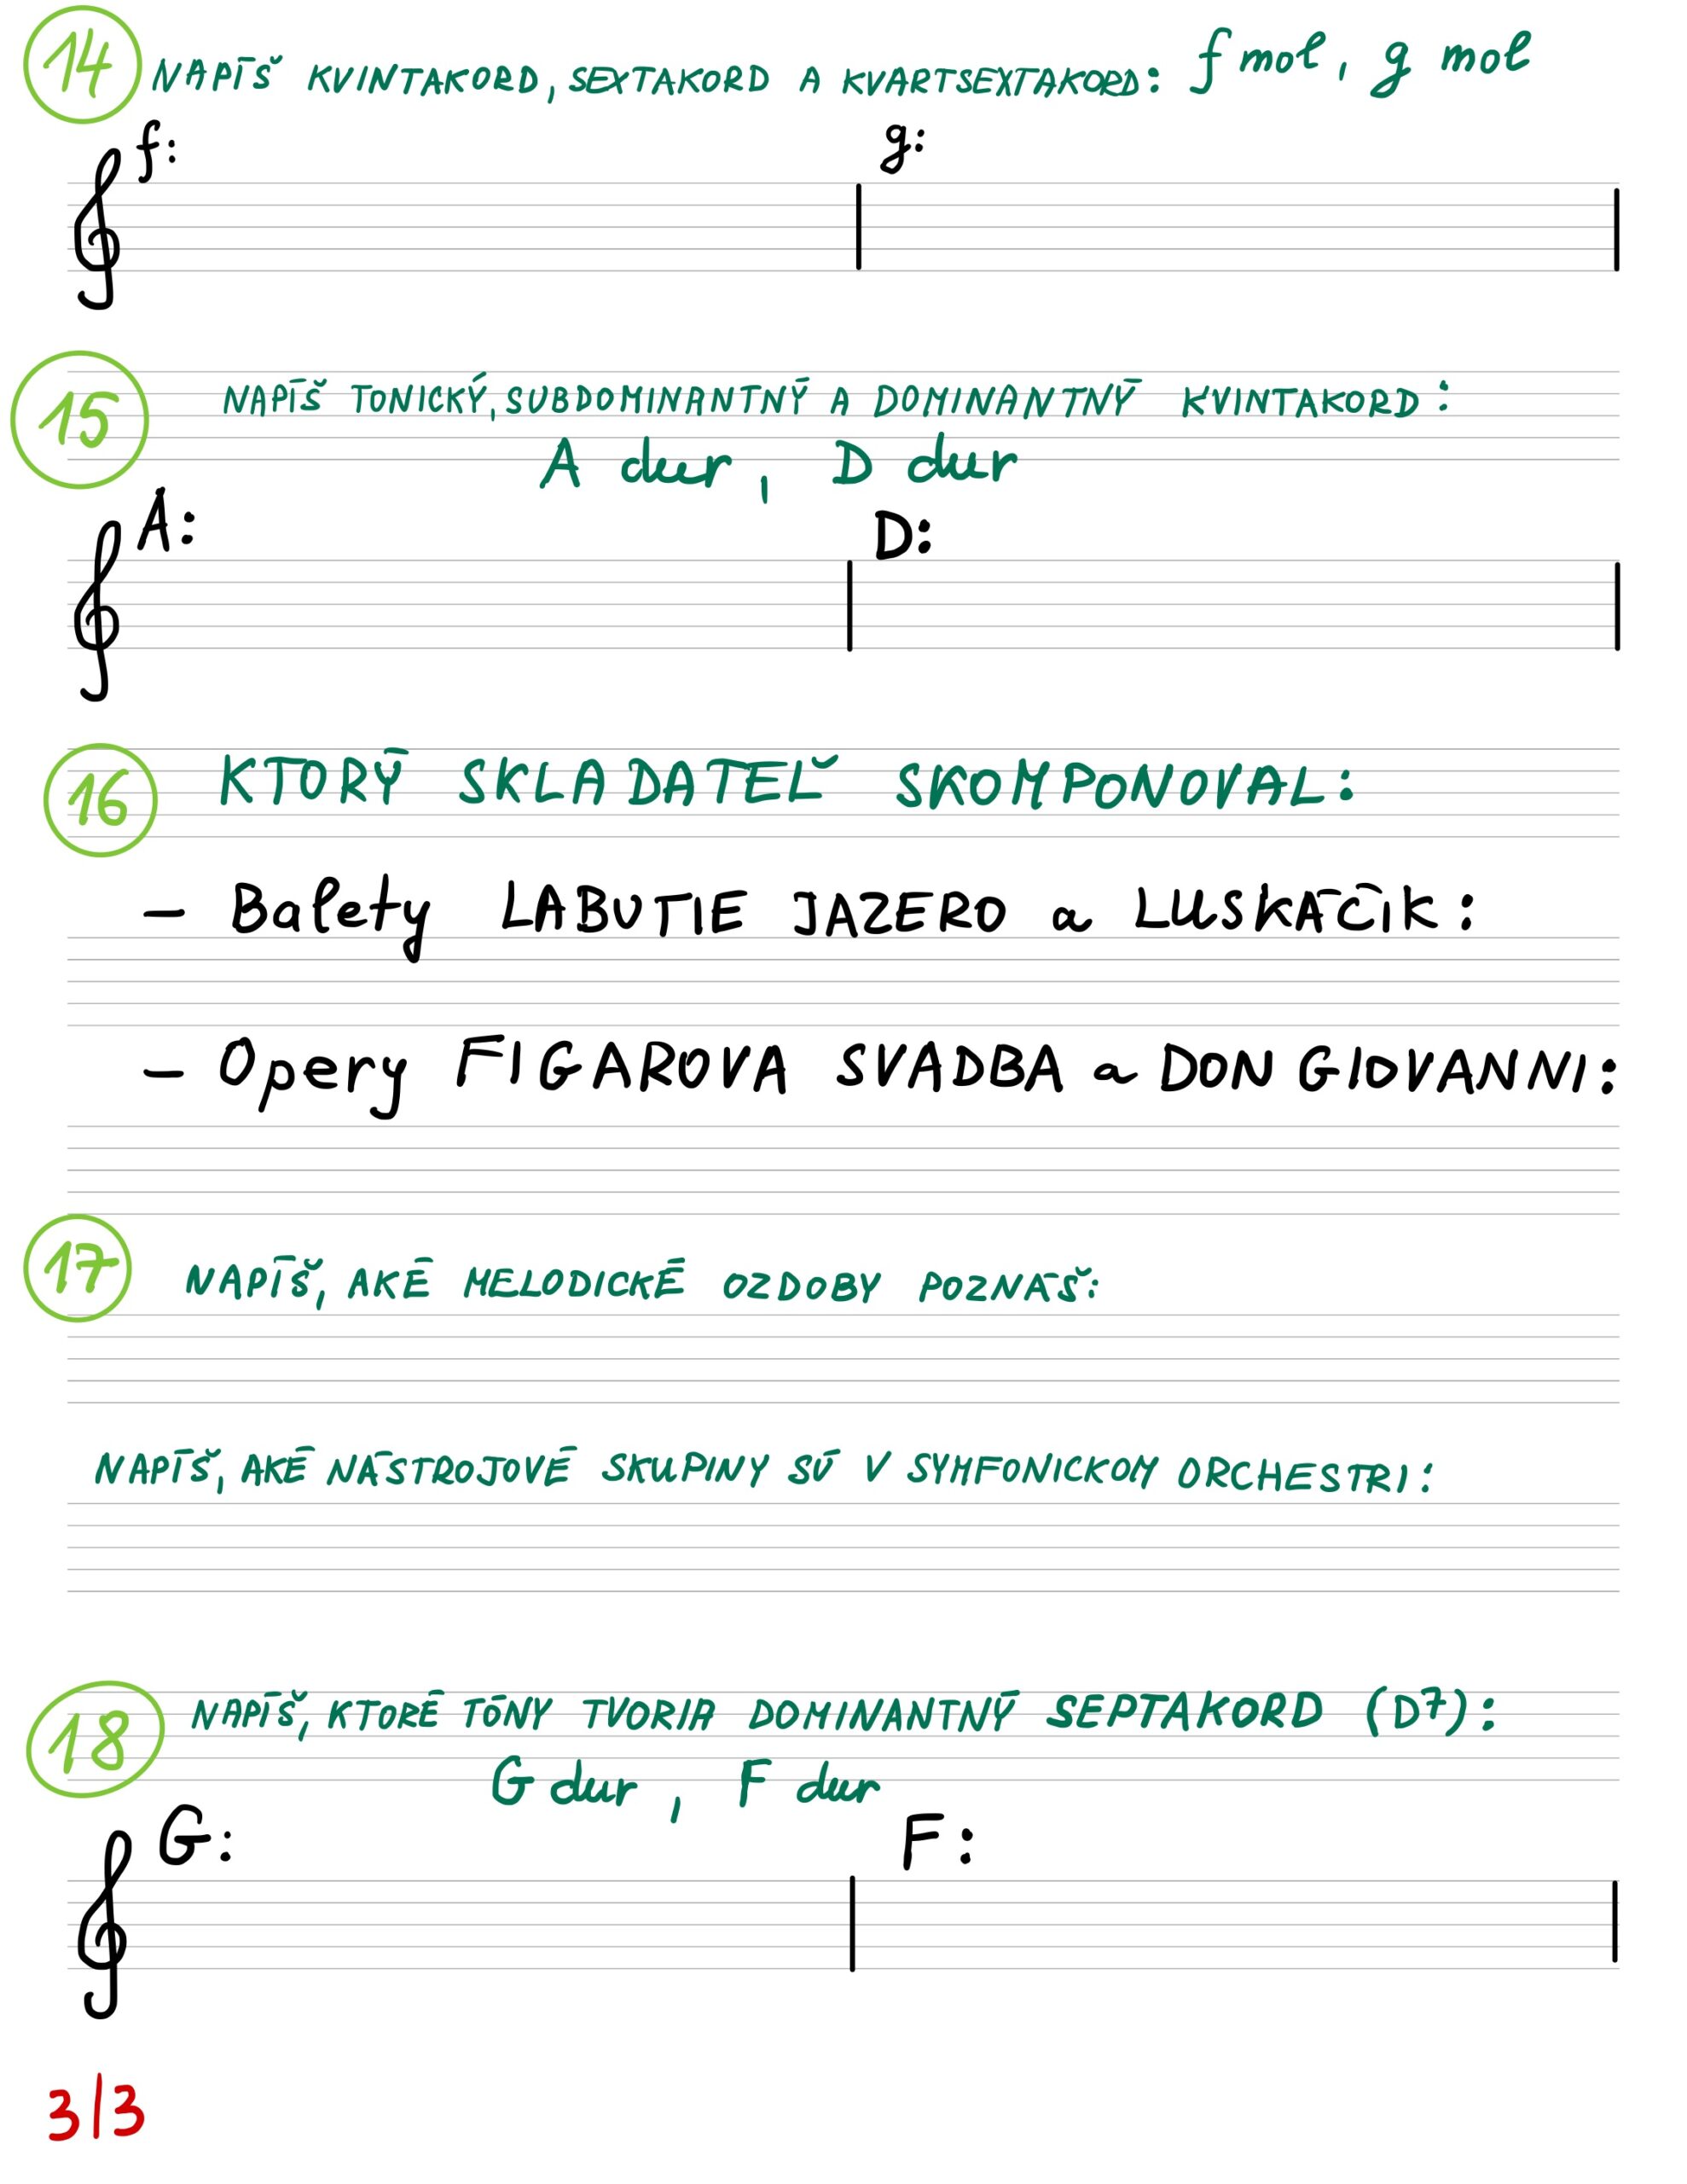 14 NAPÍŠ KVINTAKORD, SEXTAKORD A KVARTSEXTAKORD: f mol, g mol
f: g:
15 NAPÍŠ TONICKÝ, SUBDOMINANTNÝ A DOMINANTNÝ KVINTAKORD:
A dur, D dur
A: D:
16 KTORÝ SKLADATEĽ SKOMPONOVAL:
- Balety LABUTIE JAZERO a LUSKÁČIK:
- Opery FIGAROVA SVADBA a DON GIOVANNI:
17 NAPÍŠ, AKÉ MELODICKÉ OZDOBY POZNÁŠ:
NAPÍŠ, AKÉ NÁSTROJOVÉ SKUPINY SÚ V SYMFONICKOM ORCHESTRI:
18 NAPÍŠ, KTORÉ TÓNY TVORIA DOMINANTNÝ SEPTAKORD (D7):
G dur, F dur
G: F:
3/3